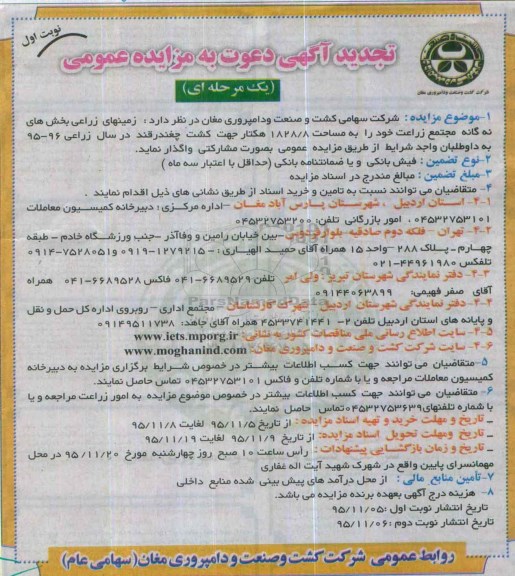 نوبت اول
تجدید آگهی دعوت به مزایده عمومی
(یک مرحله ای)
شرکت کشت و صنعت و دامپروری مغان
۱-موضوع مزایده : شرکت سهامی کشت و صنعت ودامپروری مغان در نظر دارد : زمینهای زراعی بخش های
نه گانه مجتمع زراعت خود را به مساحت ۱۸۲۸/۸ هکتار جهت کشت چغندرقند در سال زراعی ۹۶-۹۵
به داوطلبان واجد شرایط از طریق مزایده عمومی بصورت مشارکتی واگذار نماید.
۲-نوع تضمین : فیش بانکی و یا ضمانتنامه بانکی (حداقل با اعتبار سه ماه )
۳-مبلغ تضمین : مبالغ مندرج در اسناد مزایده
۴- متقاضیان می توانند نسبت به تامین و خرید اسناد از طریق نشانی های ذیل اقدام نمایند .
۴-۱- استان اردبیل ، شهرستان پارس آباد مغان -اداره مرکزی : دبیرخانه کمیسیون معاملات
۰۴۵۳۲۷۵۳۱۰۱ ، امور بازرگانی تلفن: ۰۴۵۳۲۷۵۳۲۰۰
۴-۲- تهران - فلکه دوم صادقیه بلوار فردوس -بین خیابان رامین و وفاآذر -جنب ورزشگاه خادم - طبقه
چهارم - پلاک ۲۸۸ -واحد ۱۵ همراه آقای حمید الهیاری : ۱۲۷۹۲۱۵-۰۹۱۹ و۷۵۲۸۰۵۱-۰۹۱۴
تلفکس ۴۴۹۶۱۹۸۰-۰۲۱
۴-۳- دفتر نمایندگی شهرستان تبریز : ولی امر تلفن ۶۶۸۹۵۲۹-۰۴۱ فاکس ۶۶۸۹۵۲۸-۰۴۱ همراه
آقای صفر فهیمی: ۰۹۱۴۴۰۶۳۸۹۹
۴-۴- دفتر نمایندگی شهرستان اردبیل : شهرک کارشناسان - مجتمع اداری - روبروی اداره کل حمل و نقل
و پایانه های استان اردبیل تلفن ۲- ۴۵۳۳۷۴۱۴۴۱ همراه آقای جاهد: ۰۹۱۴۹۵۱۱۷۳۸
۴-۵- سایت اطلاع رسانی ملی مناقصات کشور به نشانی: www.iets.mporg.ir
۴-۶- سایت شرکت کشت و صنعت و دامپروری مغان: www.moghanind.com
۵-متقاضیان می توانند جهت کسب اطلاعات بیشتر در خصوص شرایط برگزاری مزایده به دبیرخانه
کمیسیون معاملات مراجعه و یا با شماره تلفن و فاکس ۰۴۵۳۲۷۵۳۱۰۱ تماس حاصل نمایند.
۶- متقاضیان می توانند جهت کسب اطلاعات بیشتر در خصوص موضوع مزایده به امور زراعت مراجعه و یا
با شماره تلفنهای۰۴۵۳۲۷۵۳۶۳۹ تماس حاصل نمایند.
_ تاریخ و مهلت خرید و تهیه اسناد مزایده : از تاریخ ۹۵/۱۱/۵ لغایت ۹۵/۱۱/۸
_ تاریخ ومهلت تحویل اسناد مزایده: از تاریخ ۹۵/۱۱/۹ لغایت ۹۵/۱۱/۱۹
_ تاریخ و زمان بازگشایی پیشنهادات : رأس ساعت ۱۰ صبح روز چهارشنبه مورخ ۹۵/۱۱/۲۰ در محل
مهمانسرای پایین واقع در شهرک شهید آیت اله غفاری
۷-تأمین منابع مالی : از محل درآمد های پیش بینی شده منابع داخلی
۸- هزینه درج آگهی بعهده برنده مزایده می باشد.
تاریخ انتشار نوبت اول :۹۵/۱۱/۰۵
تاریخ انتشار نوبت دوم :۹۵/۱۱/۰۶
روابط عمومی شرکت کشت وصنعت و دامپروری مغان(سهامی عام)